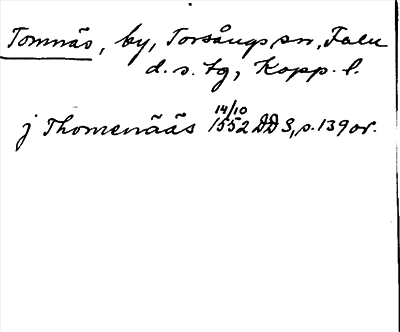 Tomnäs, by, Torsångs sn, Falu
d. s. tg, Kopp. l.
j Thomenääs 14/10 1552 DD 3, s. 139 or.